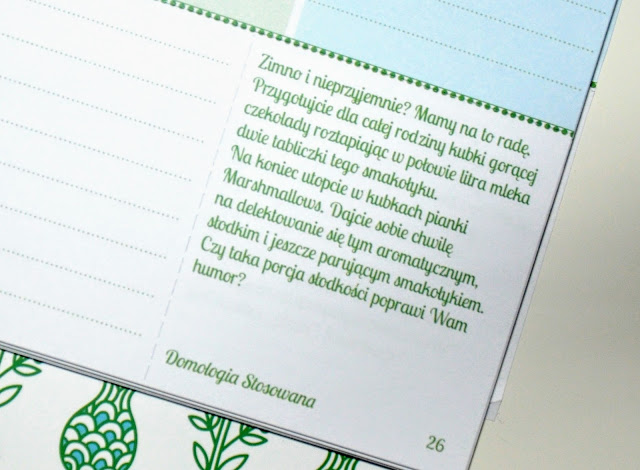 Zimno i nieprzyjemnie? Mamy na to radę.
Przygotujcie dla całej rodziny kubki gorącej
czekolady roztapiając w połowie litra mleka
dwie tabliczki tego smakołyku.
Na koniec utopcie w kubkach pianki
Marshmallows. Dajcie sobie chwilę
na delektowanie się tym aromatycznym,
słodkim i jeszcze parującym smakołykiem.
Czy taka porcja słodkości poprawi Wam
humor?
Domologia Stosowana
26